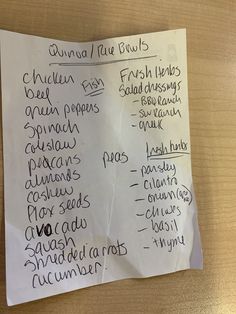 Quinoa/Rice Bowls
chicken
beef
Fish
green peppers
spinach
coleslaw
pecans
almonds
cashew
Flax seeds
avocado
squash
shredded carrots
cucumber
peas
Fresh Herbs
Salad dressings
- BBQ Ranch
- SW Ranch
- greek
Fresh herbs
- parsley
- cilantro
- onion
- chives
- basil
- thyme